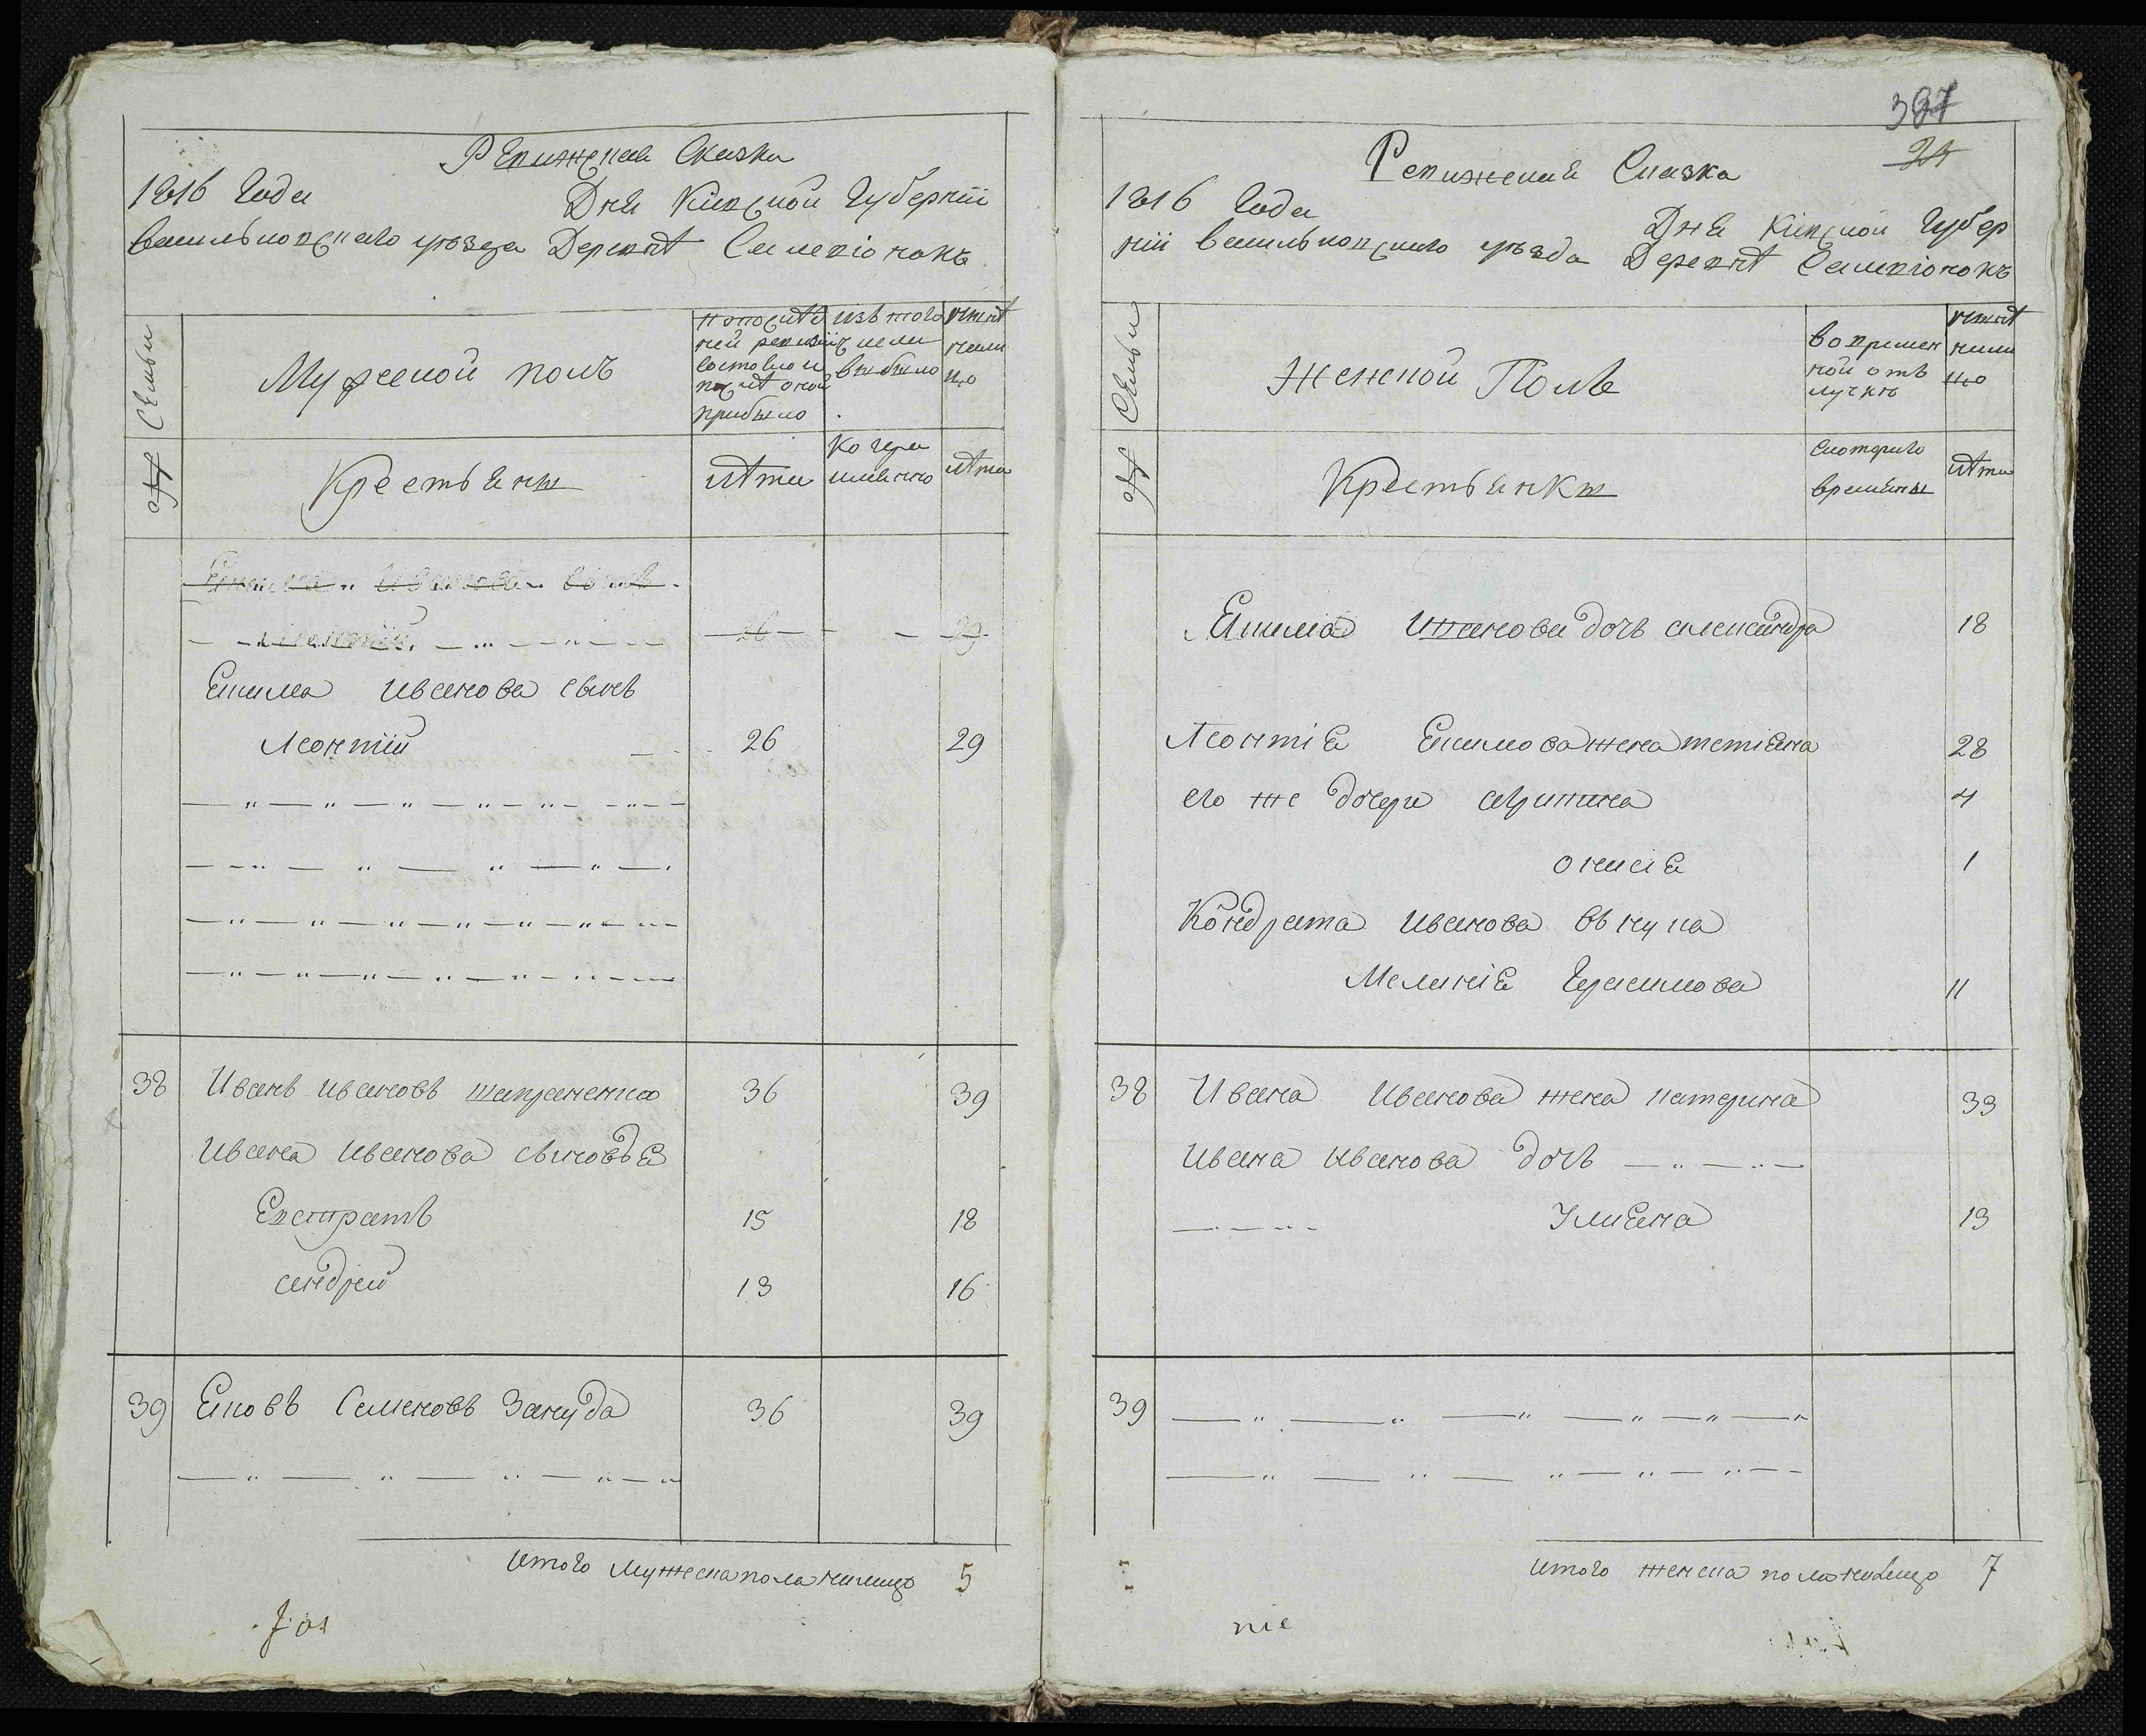 Ревижская Сказка
1816 Года Дня Кіевской Губерніи
васильковскаго уѣзда Деревнѣ
Семьи
Мужеской полъ
по послѣд
ней ревизіи
состояло и
послѣ оной
прибыло
изъ того
числа
выбыло
нынѣ
нали
цо
№
Крестьяне
лѣта
Когда
именно
лѣта
Екима Иванова сынъ
Леонтій 26 29
Екима Иванова сынъ
Леонтій 26 29
38 Иванъ Ивановъ 36 39
Ивана Иванова сыновья
Евстратъ 15 18
андрей 13 16
39 Яковъ Семеновъ Зануда 36 39
итого мужеска пола налицо 5
397
24
Ревижская Сказка
1816 Года Дня Кіевской Губер
ніи васильковскаго уѣзда Деревнѣ
Семьи
Женской Полъ
во времен
ной от
лучкѣ
нынѣ
нали
цо
№
Крестьянки
с котораго
времени
лѣта
Екима Иванова дочь александра 18
Леонтія Екимова жена татіяна 28
его же дочери 4
1
Кондрата Иванова внука
Меланія Герасимова 11
38 Ивана Иванова жена катерина 33
Ивана Иванова дочь
Улияна 13
39
итого женска пола налицо 7
nie